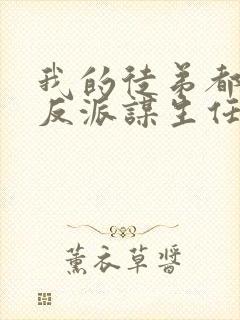 我的徒弟都
反派謀生任
薰衣草醬